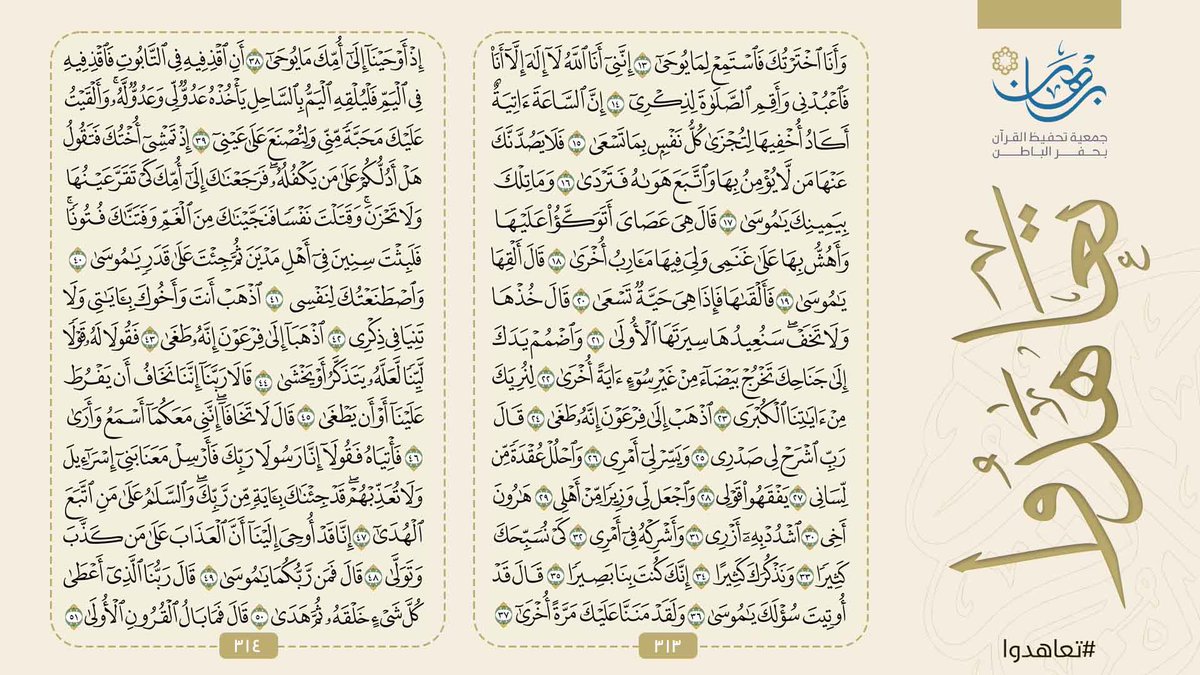 برهان
جمعية تحفيظ القرآن
بحفر الباطن
تعاهدوا
#تعاهدوا
وَأَنَا ٱخۡتَرۡتُكَ فَٱسۡتَمِعۡ لِمَا يُوحَىٰٓ ١٣ إِنَّنِيٓ أَنَا ٱللَّهُ لَآ إِلَٰهَ إِلَّآ أَنَا۠
فَٱعۡبُدۡنِي وَأَقِمِ ٱلصَّلَوٰةَ لِذِكۡرِيٓ ١٤ إِنَّ ٱلسَّاعَةَ ءَاتِيَةٌ
أَكَادُ أُخۡفِيهَا لِتُجۡزَىٰ كُلُّ نَفۡسِۭ بِمَا تَسۡعَىٰ ١٥ فَلَا يَصُدَّنَّكَ
عَنۡهَا مَن لَّا يُؤۡمِنُ بِهَا وَٱتَّبَعَ هَوَىٰهُ فَتَرۡدَىٰ ١٦ وَمَا تِلۡكَ
بِيَمِينِكَ يَٰمُوسَىٰ ١٧ قَالَ هِيَ عَصَايَ أَتَوَكَّؤُاْ عَلَيۡهَا
وَأَهُشُّ بِهَا عَلَىٰ غَنَمِي وَلِيَ فِيهَا مَـَٔارِبُ أُخۡرَىٰ ١٨ قَالَ أَلۡقِهَا
يَٰمُوسَىٰ ١٩ فَأَلۡقَىٰهَا فَإِذَا هِيَ حَيَّةٞ تَسۡعَىٰ ٢٠ قَالَ خُذۡهَا
وَلَا تَخَفۡۖ سَنُعِيدُهَا سِيرَتَهَا ٱلۡأُولَىٰ ٢١ وَٱضۡمُمۡ يَدَكَ
إِلَىٰ جَنَاحِكَ تَخۡرُجۡ بَيۡضَآءَ مِنۡ غَيۡرِ سُوٓءٍ ءَايَةً أُخۡرَىٰ ٢٢ لِنُرِيَكَ
مِنۡ ءَايَٰتِنَا ٱلۡكُبۡرَى ٢٣ ٱذۡهَبۡ إِلَىٰ فِرۡعَوۡنَ إِنَّهُۥ طَغَىٰ ٢٤ قَالَ
رَبِّ ٱشۡرَحۡ لِي صَدۡرِي ٢٥ وَيَسِّرۡ لِيٓ أَمۡرِي ٢٦ وَٱحۡلُلۡ عُقۡدَةٗ مِّن
لِّسَانِي ٢٧ يَفۡقَهُواْ قَوۡلِي ٢٨ وَٱجۡعَل لِّي وَزِيرٗا مِّنۡ أَهۡلِي ٢٩ هَٰرُونَ
أَخِي ٣٠ ٱشۡدُدۡ بِهِۦٓ أَزۡرِي ٣١ وَأَشۡرِكۡهُ فِيٓ أَمۡرِي ٣٢ كَيۡ نُسَبِّحَكَ
كَثِيرٗا ٣٣ وَنَذۡكُرَكَ كَثِيرًا ٣٤ إِنَّكَ كُنتَ بِنَا بَصِيرٗا ٣٥ قَالَ قَدۡ
أُوتِيتَ سُؤۡلَكَ يَٰمُوسَىٰ ٣٦ وَلَقَدۡ مَنَنَّا عَلَيۡكَ مَرَّةً أُخۡرَىٰٓ ٣٧
٣١٣
إِذۡ أَوۡحَيۡنَآ إِلَىٰٓ أُمِّكَ مَا يُوحَىٰٓ ٣٨ أَنِ ٱقۡذِفِيهِ فِي ٱلتَّابُوتِ فَٱقۡذِفِيهِ
فِي ٱلۡيَمِّ فَلۡيُلۡقِهِ ٱلۡيَمُّ بِٱلسَّاحِلِ يَأۡخُذۡهُ عَدُوّٞ لِّي وَعَدُوّٞ لَّهُۥۚ وَأَلۡقَيۡتُ
عَلَيۡكَ مَحَبَّةٗ مِّنِّي وَلِتُصۡنَعَ عَلَىٰ عَيۡنِيٓ ٣٩ إِذۡ تَمۡشِيٓ أُخۡتُكَ فَتَقُولُ
هَلۡ أَدُلُّكُمۡ عَلَىٰ مَن يَكۡفُلُهُۥۖ فَرَجَعۡنَٰكَ إِلَىٰٓ أُمِّكَ كَيۡ تَقَرَّ عَيۡنُهَا
وَلَا تَحۡزَنَۚ وَقَتَلۡتَ نَفۡسٗا فَنَجَّيۡنَٰكَ مِنَ ٱلۡغَمِّ وَفَتَنَّٰكَ فُتُونٗاۚ
فَلَبِثۡتَ سِنِينَ فِيٓ أَهۡلِ مَدۡيَنَ ثُمَّ جِئۡتَ عَلَىٰ قَدَرٖ يَٰمُوسَىٰ ٤٠
وَٱصۡطَنَعۡتُكَ لِنَفۡسِي ٤١ ٱذۡهَبۡ أَنتَ وَأَخُوكَ بِـَٔايَٰتِي وَلَا
تَنِيَا فِي ذِكۡرِي ٤٢ ٱذۡهَبَآ إِلَىٰ فِرۡعَوۡنَ إِنَّهُۥ طَغَىٰ ٤٣ فَقُولَا لَهُۥ قَوۡلٗا
لَّيِّنٗا لَّعَلَّهُۥ يَتَذَكَّرُ أَوۡ يَخۡشَىٰ ٤٤ قَالَا رَبَّنَآ إِنَّنَا نَخَافُ أَن يَفۡرُطَ
عَلَيۡنَآ أَوۡ أَن يَطۡغَىٰ ٤٥ قَالَ لَا تَخَافَآۖ إِنَّنِي مَعَكُمَآ أَسۡمَعُ وَأَرَىٰ
٤٦ فَأۡتِيَاهُ فَقُولَآ إِنَّا رَسُولَا رَبِّكَ فَأَرۡسِلۡ مَعَنَا بَنِيٓ إِسۡرَٰٓءِيلَ
وَلَا تُعَذِّبۡهُمۡۖ قَدۡ جِئۡنَٰكَ بِـَٔايَةٖ مِّن رَّبِّكَۖ وَٱلسَّلَٰمُ عَلَىٰ مَنِ ٱتَّبَعَ
ٱلۡهُدَىٰٓ ٤٧ إِنَّا قَدۡ أُوحِيَ إِلَيۡنَآ أَنَّ ٱلۡعَذَابَ عَلَىٰ مَن كَذَّبَ
وَتَوَلَّىٰ ٤٨ قَالَ فَمَن رَّبُّكُمَا يَٰمُوسَىٰ ٤٩ قَالَ رَبُّنَا ٱلَّذِيٓ أَعۡطَىٰ
كُلَّ شَيۡءٍ خَلۡقَهُۥ ثُمَّ هَدَىٰ ٥٠ قَالَ فَمَا بَالُ ٱلۡقُرُونِ ٱلۡأُولَىٰ ٥١
٣١٤